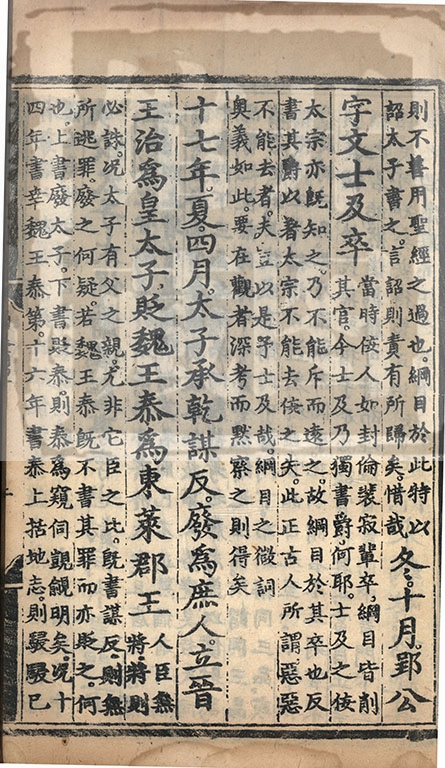 則不善用聖經之過也。綱目於此特以
詔太子書之。言詔則責有所歸矣。惜哉
冬。十月。郢公
宇文士及卒
當時佞人如封倫裴寂輩卒。綱目皆削
其官。今士及乃獨書爵。何耶。士及之佞
太宗亦旣知之。乃不能斥而遠之。故綱目於其卒也反
書其爵以著太宗不能去佞之失。此正古人所謂惡惡
不能去者。夫豈以是予士及哉。綱目之微詞
奥義如此。要在觀者深考而黙察之則得矣
十七年。夏。四月。太子承乾謀反。廢爲庶人。立晉
王治爲皇太子。貶魏王泰爲東萊郡王
人臣無
將。將則
必誅。况太子有父之親。尤非它臣之比。旣書謀反。則無
所逃罪。廢之何疑。若魏王泰旣不書其罪而亦貶之。何
也。上書廢太子。下書貶泰。則泰爲窺伺覬覦明矣。况十
四年書幸魏王泰第。十六年書泰上括地志。則駸駸已